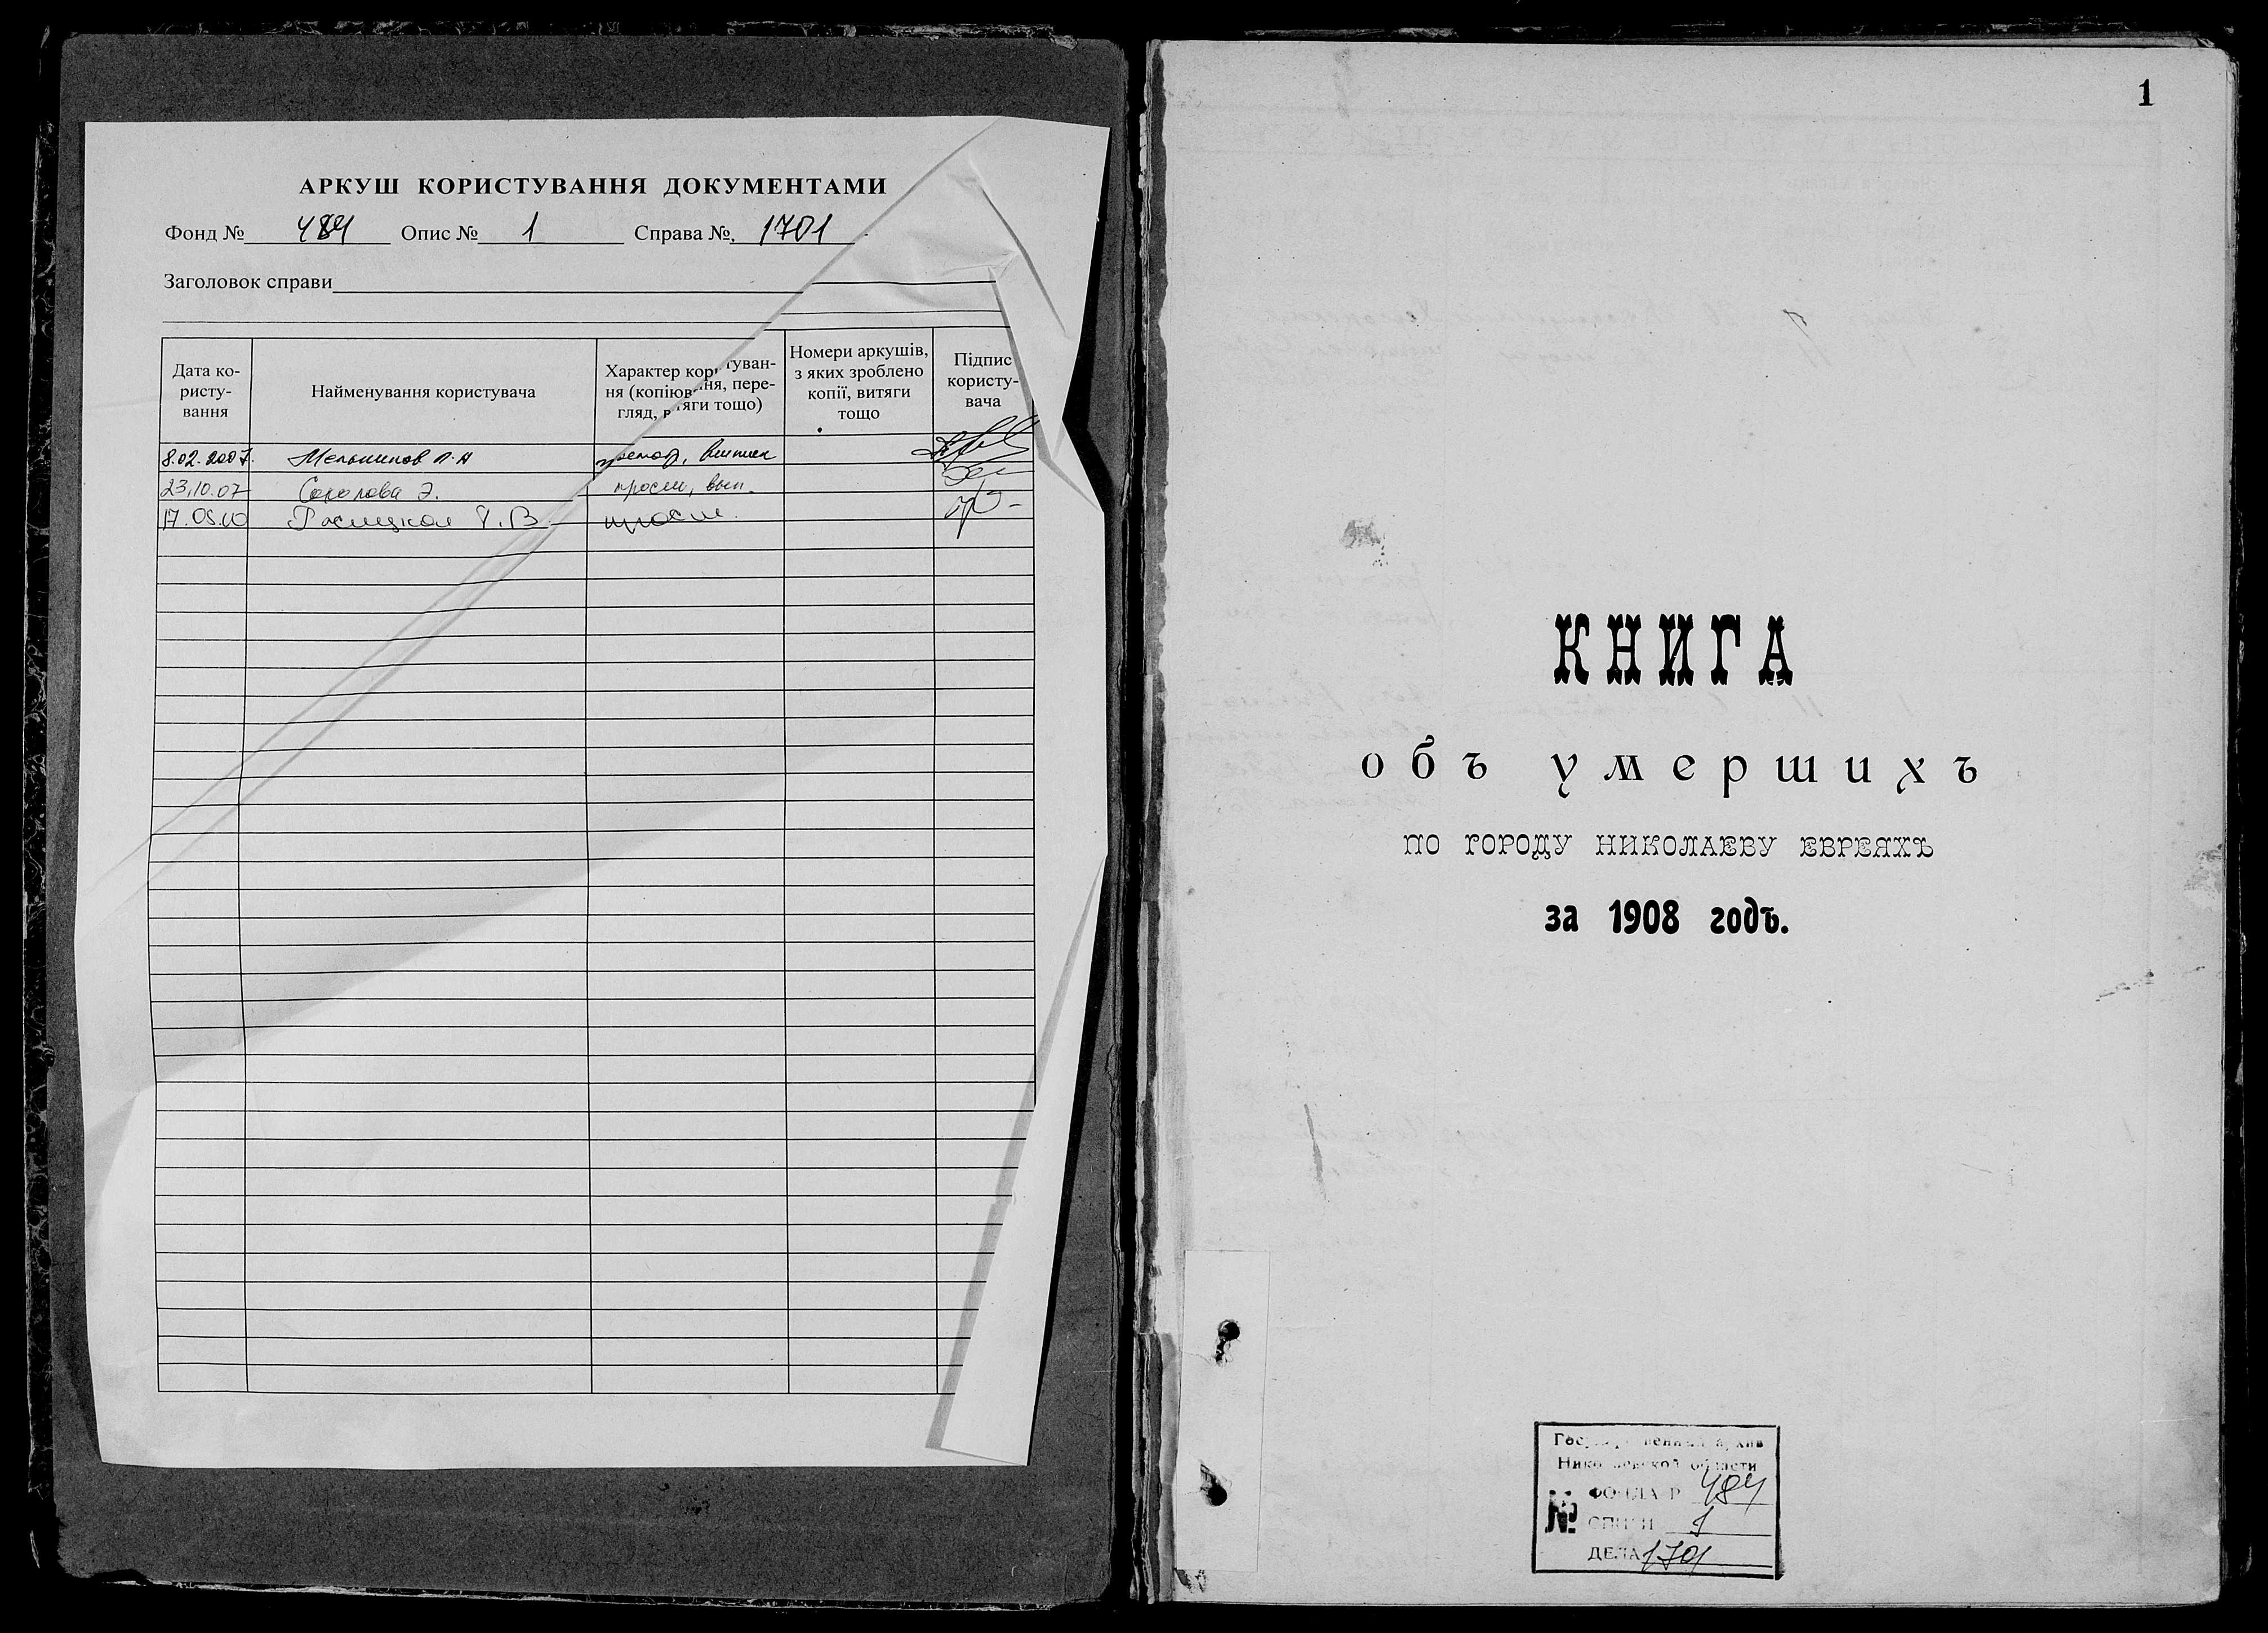 АРКУШ КОРИСТУВАННЯ ДОКУМЕНТАМИ
Фонд № 484 Опис № 1 Справа № 1701
Заголовок справи
Дата ко-
ристу-
вання
Найменування користувача
Характер користуван-
ня (копіювання, пере-
гляд, витяги тощо)
Номери аркушів,
з яких зроблено
копії, витяги
тощо
Підпис
користу-
вача
8.02.2007 Мельников
23.10.07 Соколова Э. просм, вып.
17.05.10 просм.
1
КНИГА
объ умершихъ
ПО ГОРОДУ НИКОЛАЕВУ ЕВРЕЯХЪ
за 1908 годъ.
Государственный архив
Николаевской области
№
ФОНДА Р 484
ОПИСИ 1
ДЕЛА 1701